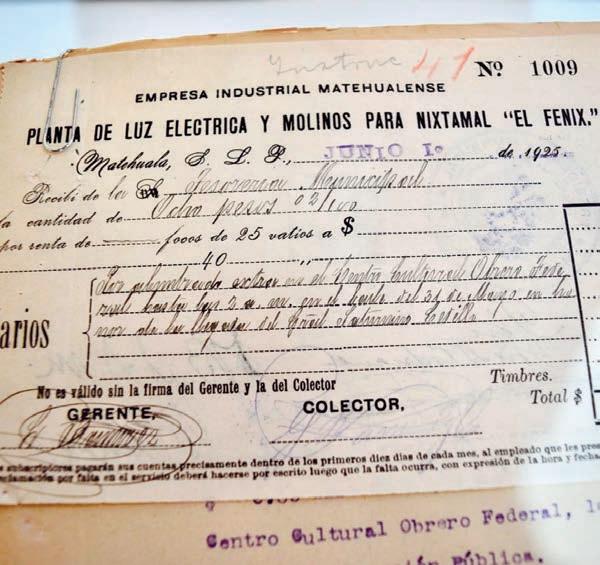 Instruc 41 Nº 1009
EMPRESA INDUSTRIAL MATEHUALENSE
PLANTA DE LUZ ELECTRICA Y MOLINOS PARA NIXTAMAL "EL FENIX."
Matehuala, S. L. P., JUNIO 1o. de 1925
Recibí de la Tesorería Municipal
la cantidad de Ocho pesos 02/100
por renta de focos de 25 vatios a $
40 "
Por alumbrado extra en el Centro Cultural Obrero Fede
ral hasta las 2 a. m. en el baile del 31 de Mayo en ho
nor de la llegada del Gral. Saturnino Cedillo
arios
No es válido sin la firma del Gerente y la del Colector
Timbres.
Total $
GERENTE,
COLECTOR,
s subscriptores pagarán sus cuentas precisamente dentro de los primeros diez dias de cada mes, al empleado que les pres
clamación por falta en el servicio deberá hacerse por escrito luego que la falta ocurra, con expresión de la hora y fecha
Centro Cultural Obrero Federal,
ón Pública.